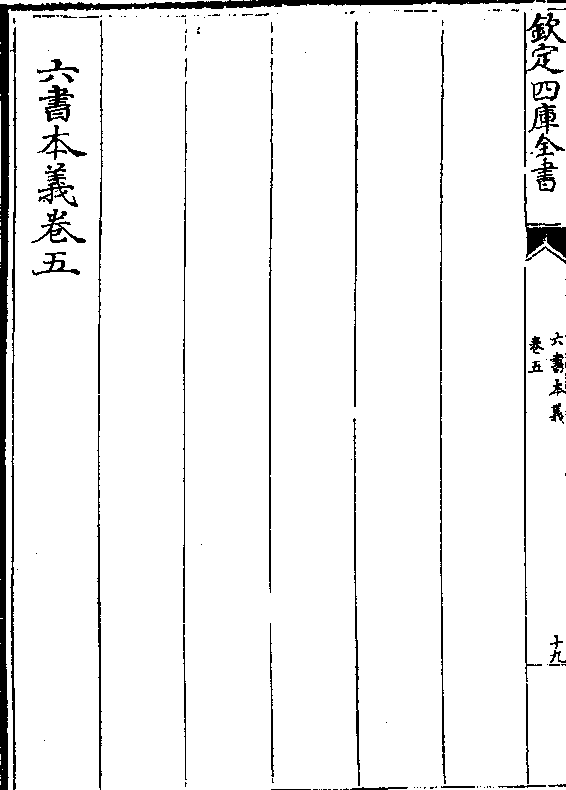 欽定四庫全書
六書本義
卷五
十九
六書本義卷五